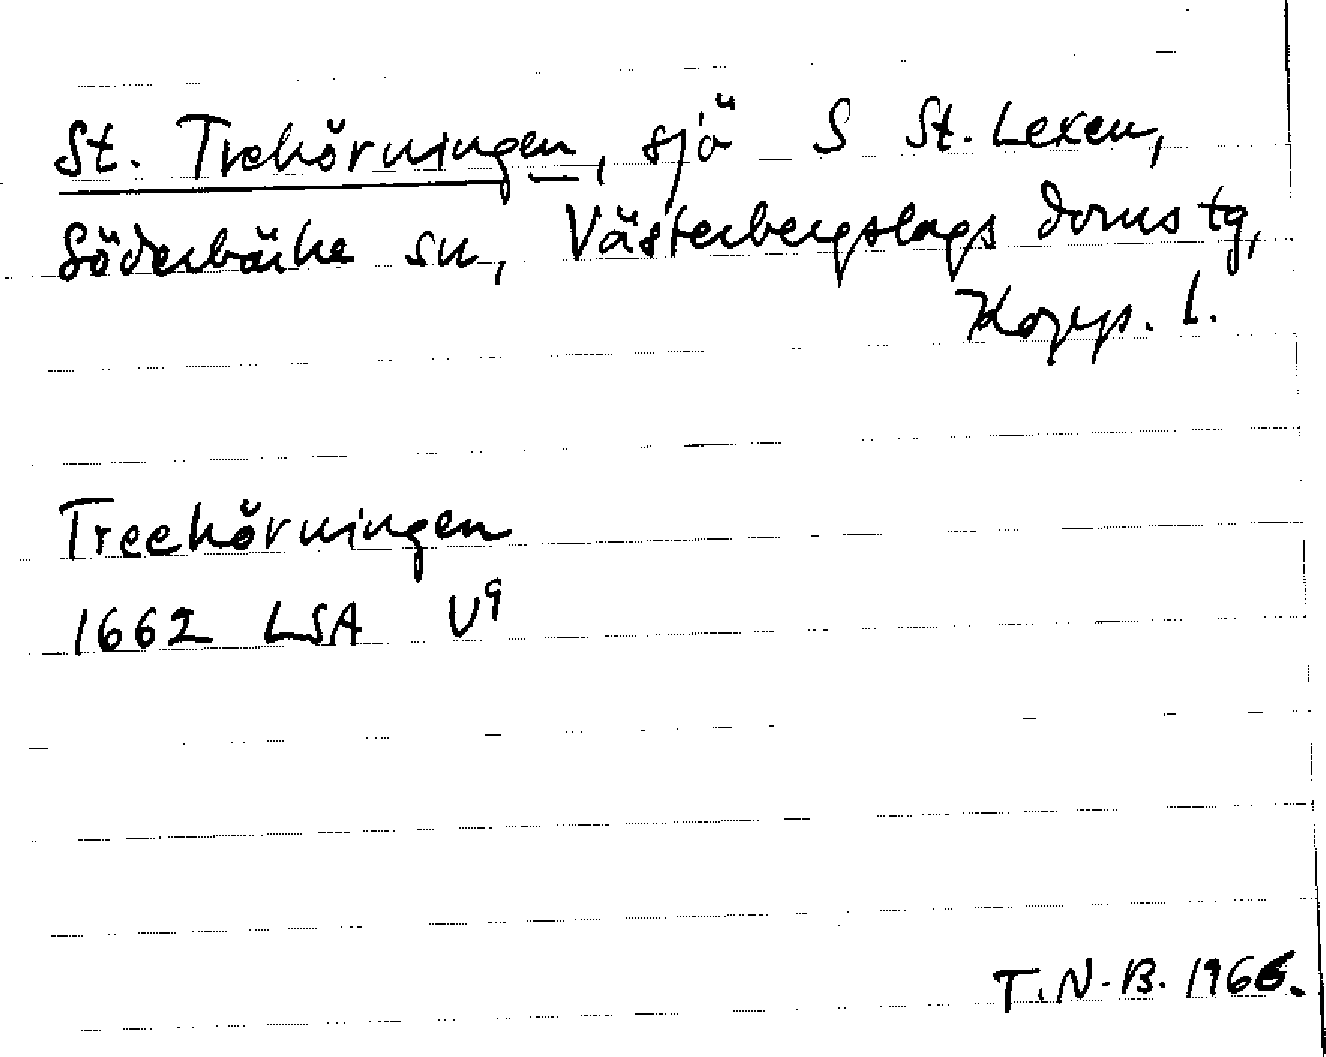 St. Trehörningen, sjö S St. Lexen,
Söderbärke sn, Västerbergslags doms tg,
Kopp. l.
Treehörningen
1662 LSA U9
T.N-B. 1966.